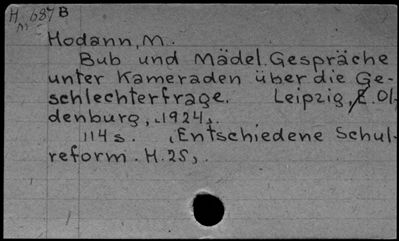 H 687 B
m
Hodann, M.
Bub und Mädel. Gespräche
unter Kameraden über die Ge-
schlechterfrage. Leipzig, E. Ol-
denburg, 1924,.
114 s. (Entschiedene Schul-
reform. H. 25),.